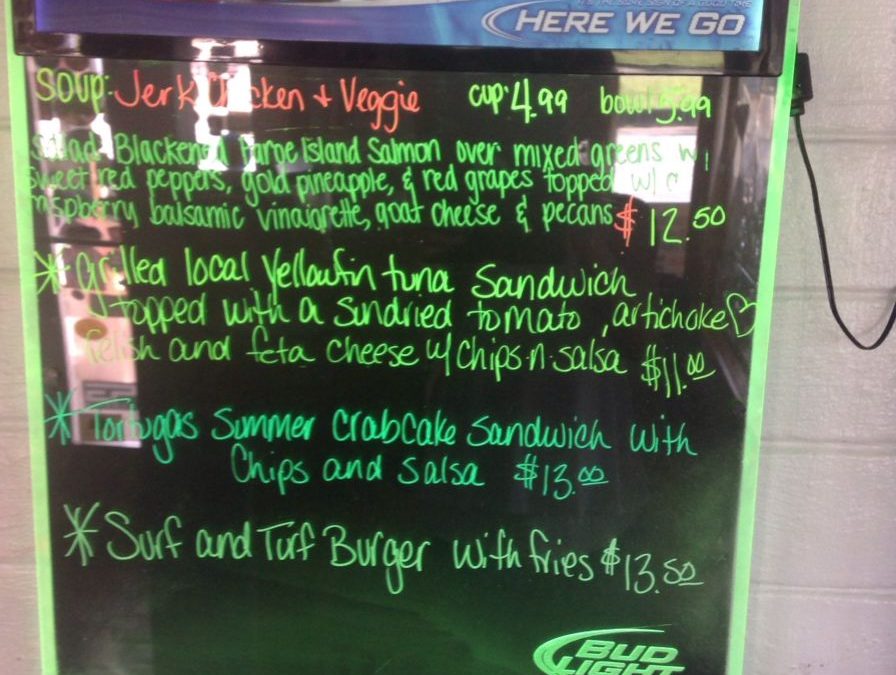 HERE WE GO
SOUP: Jerk Chicken + Veggie cup: 4.99 bowl 5.99
Salad Blackened Faroe Island Salmon over mixed greens w/
sweet red peppers, gold pineapple, & red grapes topped w/ a
raspberry balsamic vinaigrette, goat cheese & pecans $12.50
* Grilled local Yellowfin tuna Sandwich
topped with a Sundried tomato, artichoke♡
relish and feta cheese w/ chips-n-salsa $11.00
* Tortugas Summer CrabCake Sandwich with
Chips and Salsa $13.00
* Surf and Turf Burger with fries $13.50
BUD
LIGHT